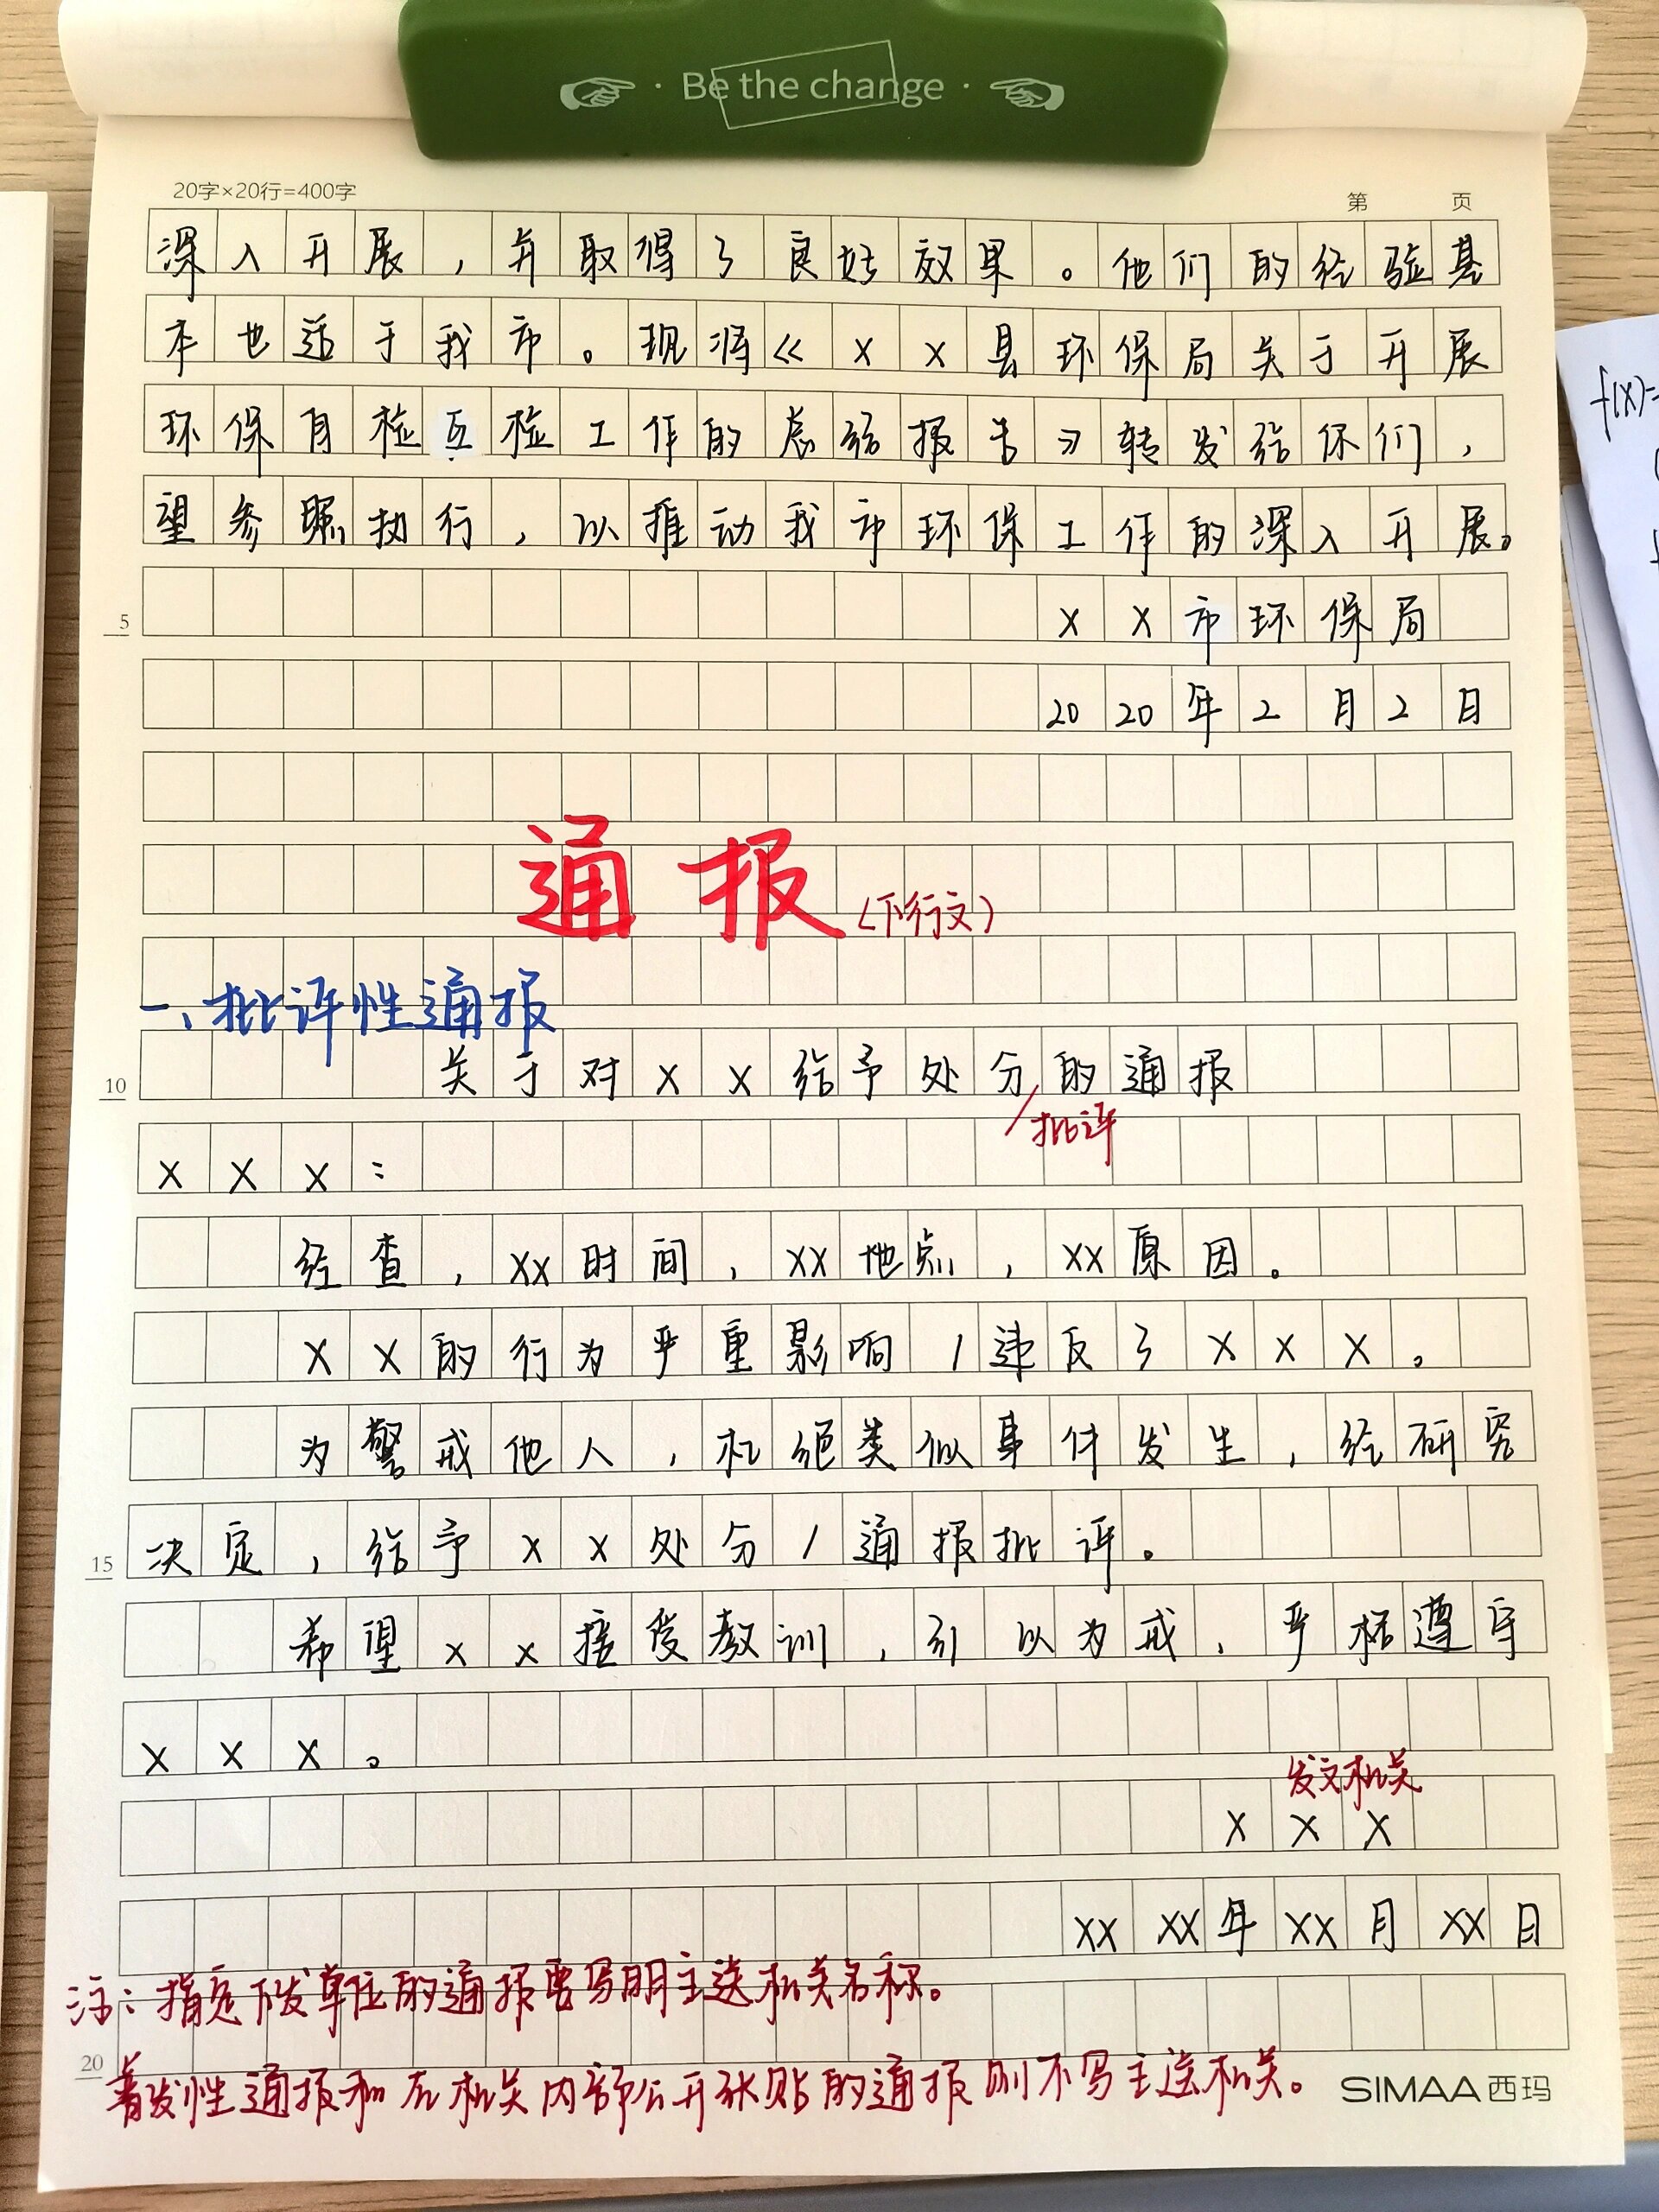 Be the change
20字×20行=400字
第 页
深入开展,并取得了良好效果。他们的经验基
本也适于我市。现将《××县环保局关于开展
环保自检互检工作的总结报告》转发给你们,
望参照执行,以推动我市环保工作的深入开展。
5
××市环保局
2020年2月2日
通报(下行文)
一、批评性通报
10
关于对××给予处分的通报
/批评
×××:
经查,××时间,××地点,××原因。
××的行为严重影响/违反了×××。
为警戒他人,杜绝类似事件发生,经研究
15
决定,给予××处分/通报批评。
希望××接受教训,引以为戒,严格遵守
×××。
发文机关
×××
××××年××月××日
注:指定下发单位的通报要写明主送机关名称。
20
普发性通报和在机关内部公开张贴的通报则不写主送机关。
SIMAA西玛
f(x)=